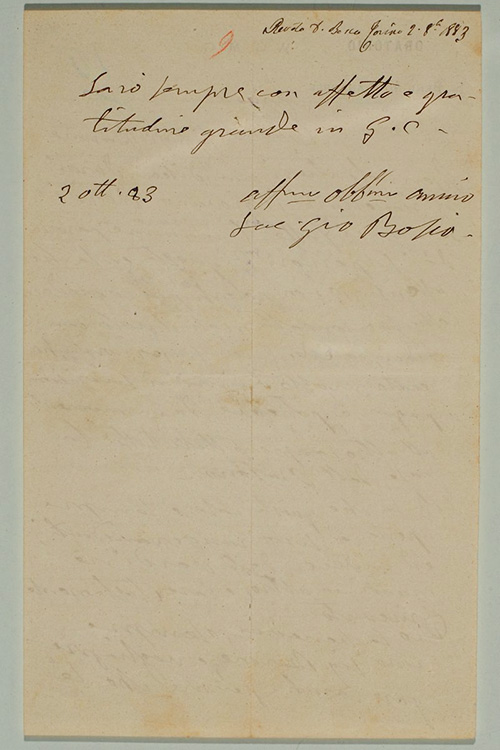 9
D. Bosco Torino 2. 8b 1883
Sarò sempre con affetto e gra-
titudine grande in G. C -
2 ott. 83
affmo obbmo amico
Sac. Gio Bosco.